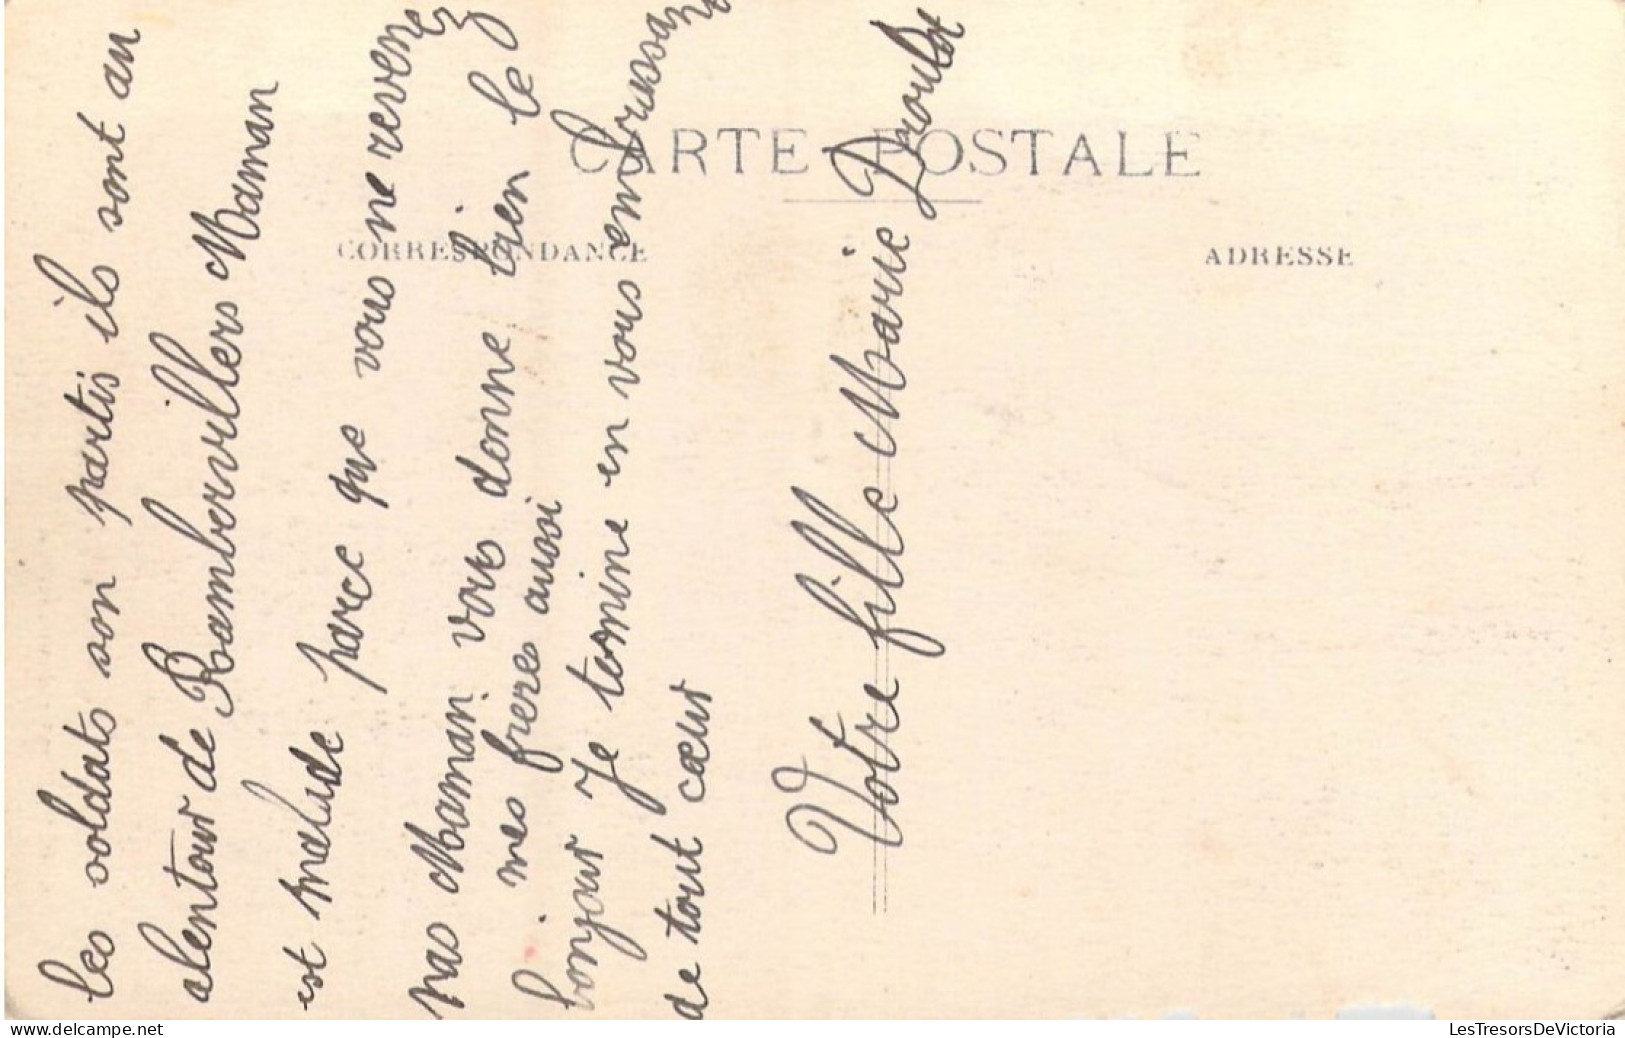 CARTE POSTALE
CORRESPONDANCE
ADRESSE
les soldats son partis ils sont au
alentour de Rambervillers Maman
est malade parce que vous ne revenez
pas Maman vous donne bien le
mes frere aussi
bonjour Je termine en vous embrassant
de tout cœur
Votre fille Marie Droulot
www.delcampe.net
LesTresorsDeVictoria